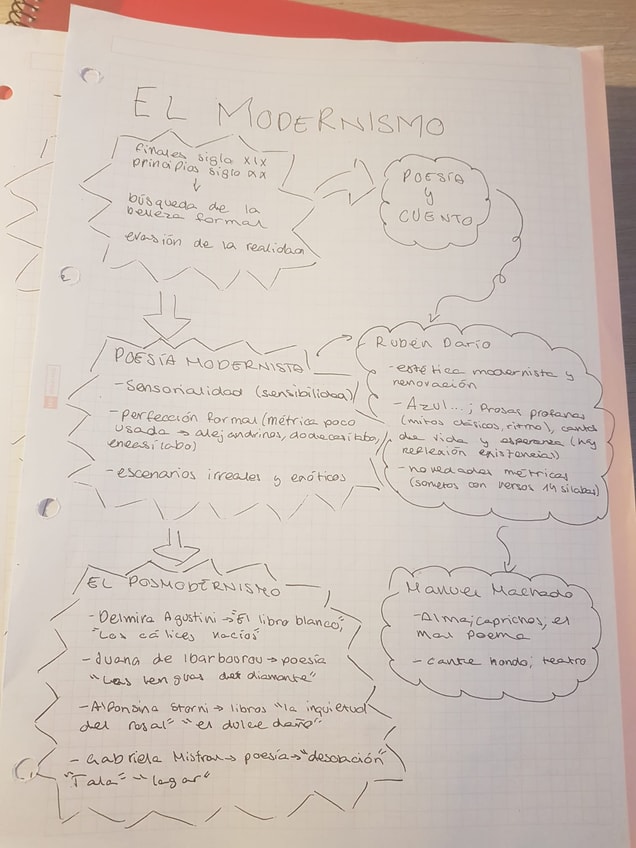 EL MODERNISMO
finales siglo XIX
principios siglo XX
↓
búsqueda de la
belleza formal
evasión de la realidad
POESÍA
y
CUENTO
POESÍA MODERNISTA
-Sensorialidad (sensibilidad)
-Perfección formal (métrica poco
usada → alejandrinos, dodecasílabo,
eneasílabo)
-escenarios irreales y exóticos
Rubén Darío
-estética modernista y
renovación
-Azul...; Prosas profanas
(mitos clásicos, ritmo), cantos
de vida y esperanza (hay
reflexión existencias)
-novedades métricas
(sonetos con versos 14 sílabas)
EL POSMODERNISMO
-Delmira Agustini → "El libro blanco",
"Los cálices vacíos"
-Juana de Ibarbourou → poesía
"Las lenguas del diamante"
-Alfonsina Storni → libros "la inquietud
del rosal" "el dulce daño"
-Gabriela Mistral → poesía → "desolación"
"Tala" "lagar"
Manuel Machado
-Alma; caprichos, el
mal poema
-cante hondo; teatro